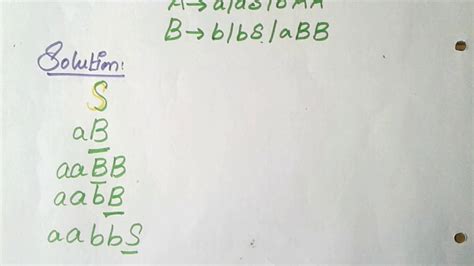 A→a|aS|bAA
B→b|bS|aBB
Solution:
S
aB
aaBB
aabB
aabbS